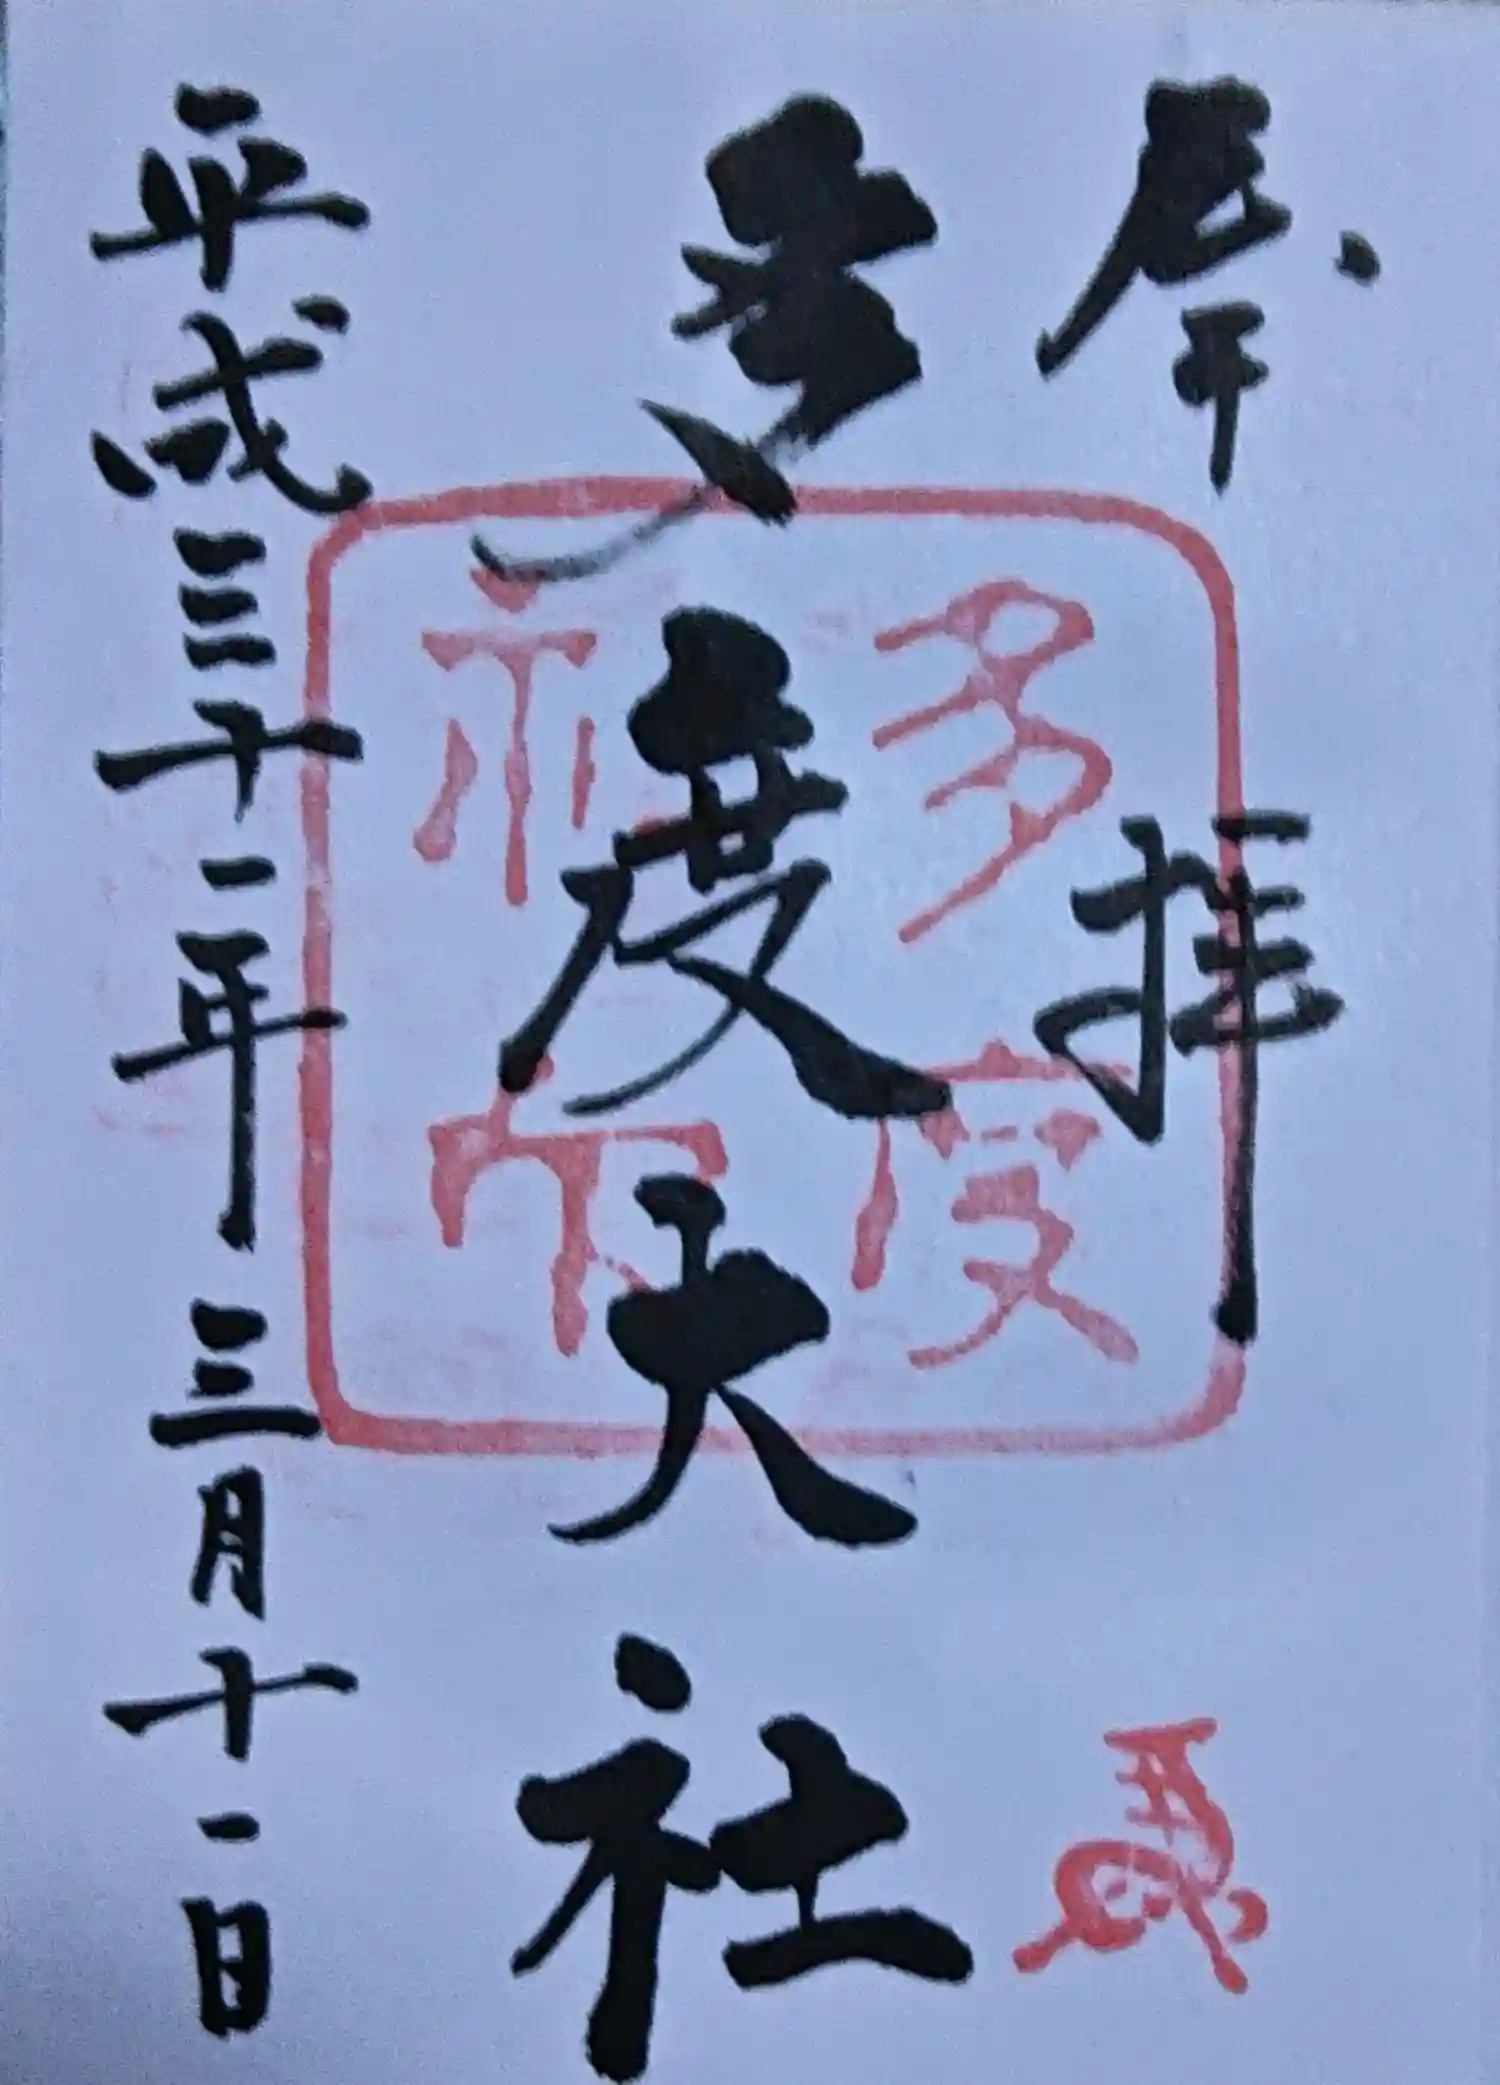 奉拝
多度大社
平成三十一年三月十一日
多度